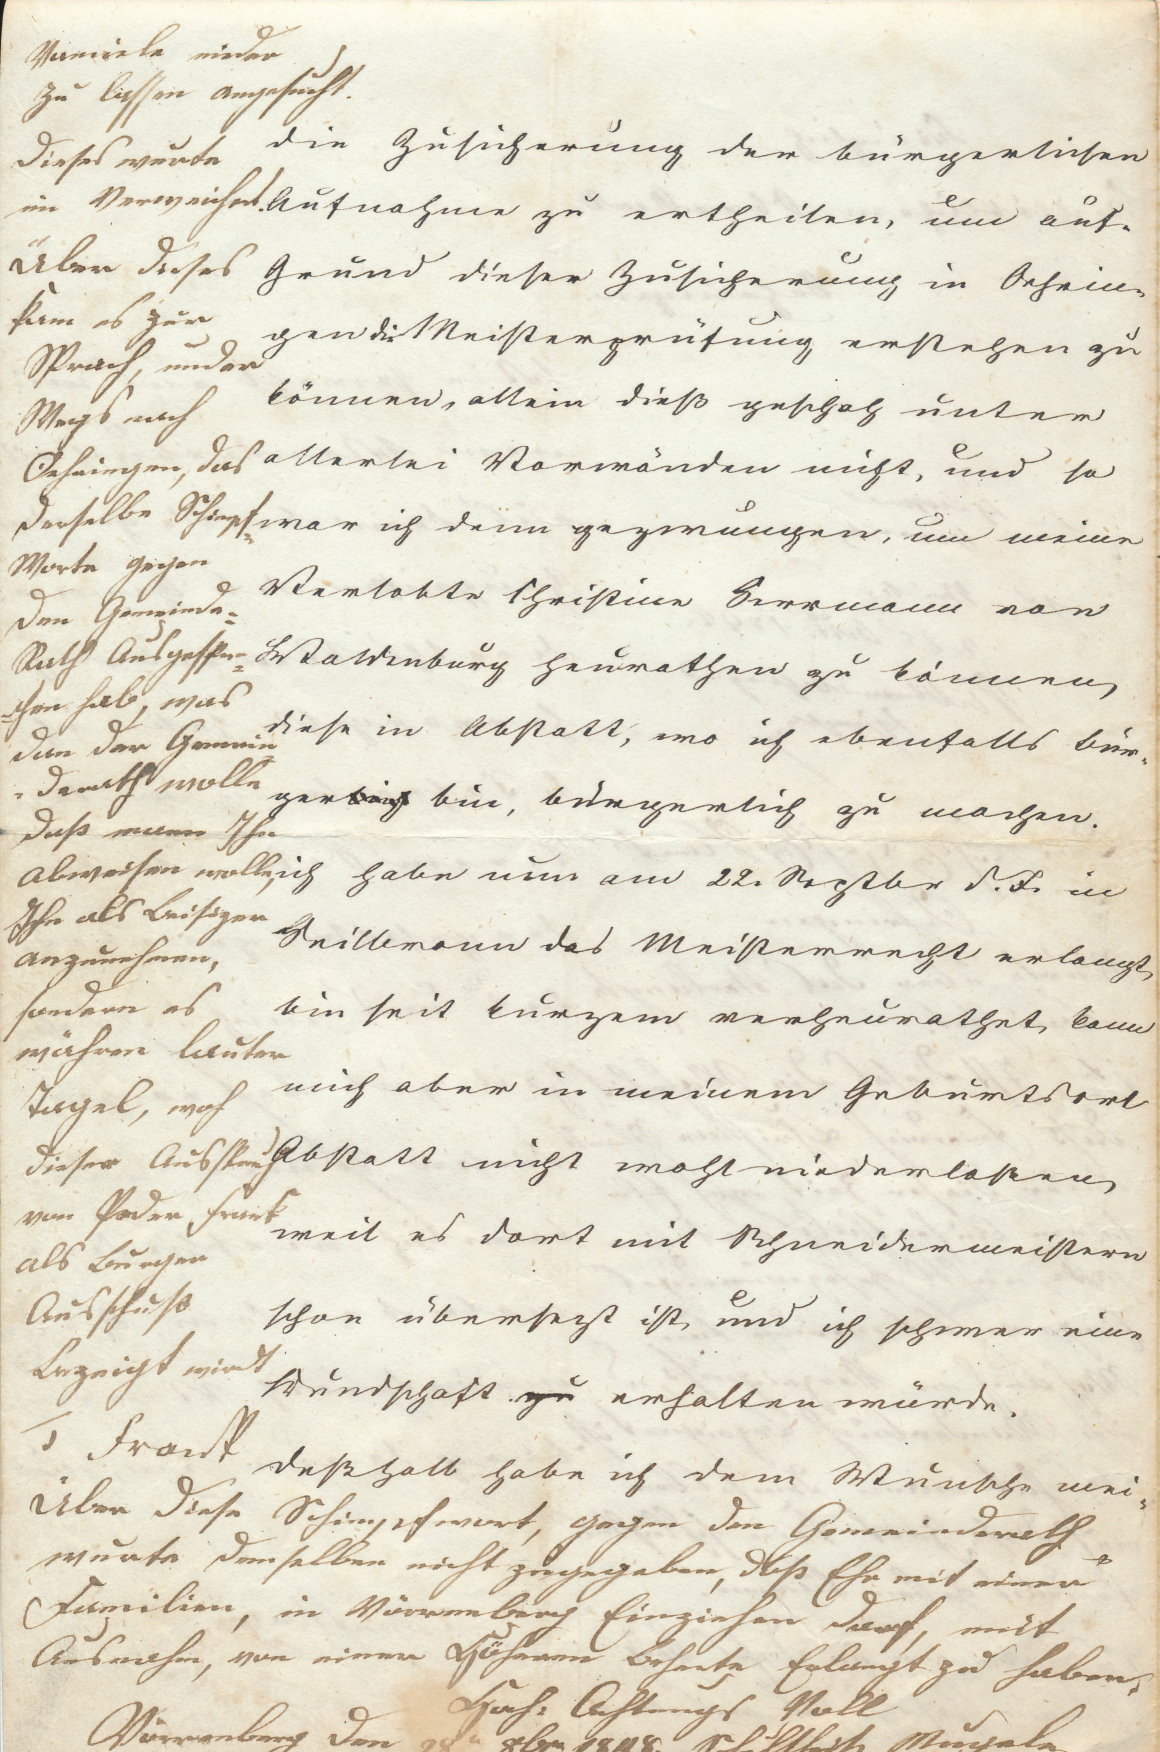 Familie nieder
zu lassen angesucht.
Dieses wurte
im Verweichert.
Über dieses
kam es zur
Sprach, under
Wegs nach
Oehringen, das
derselbe Schimpf=
Worte gegen
den Gemeinde=
Rath Ausgespro=
=chen hab, was
dan der Gemein
=derath wolle
daß mann Ihn
abweisen wolle,
Ihn als Beisizer
anzunehmen,
sondern es
währen lauter
Dagel, wo
dieser Ausspruch
von Peder Frank
als Burger
Ausschuß
bezeigt wirdt
T Frank
die Zusicherung der bürgerlichen
Aufnahme zu ertheilen, um auf
Grund dieser Zusicherung in Oehrin=
gen die Meisterprüfung erstehen zu
können, allein dieß geschah unter
allerlei Vorwänden nicht, und so
war ich denn gezwungen, um meine
Verlobte Christine Herrmann von
Waldenburg heurathen zu können,
diese in Abstatt, wo ich ebenfalls bür=
gerlich bin, bürgerlich zu machen.
ich habe nun am 22. Septbr d. J. in
Heilbronn das Meisterrecht erlangt,
bin seit kurzem verheurathet, kann
mich aber in meinem Geburtsort
Abstatt nicht wohl niederlaßen,
weil es dort mit Schneidermeistern
schon übersezt ist, und ich schwer eine
Kundschaft zu erhalten würde.
Deßhalb habe ich dem Wunsche mei=
Über diese Schimpfwort, gegen den Gemeinderath
wurte demselben nicht zugegeben, daß Ehr mit einer
Familien, in Vorrenberg Einziehen darf, mit
Ausnahm, von einer Höheren Behörte Erlangt zu haben.
Hoch= Achtungs Voll
Vorrenberg den 28 8br 1848. Schultheiß